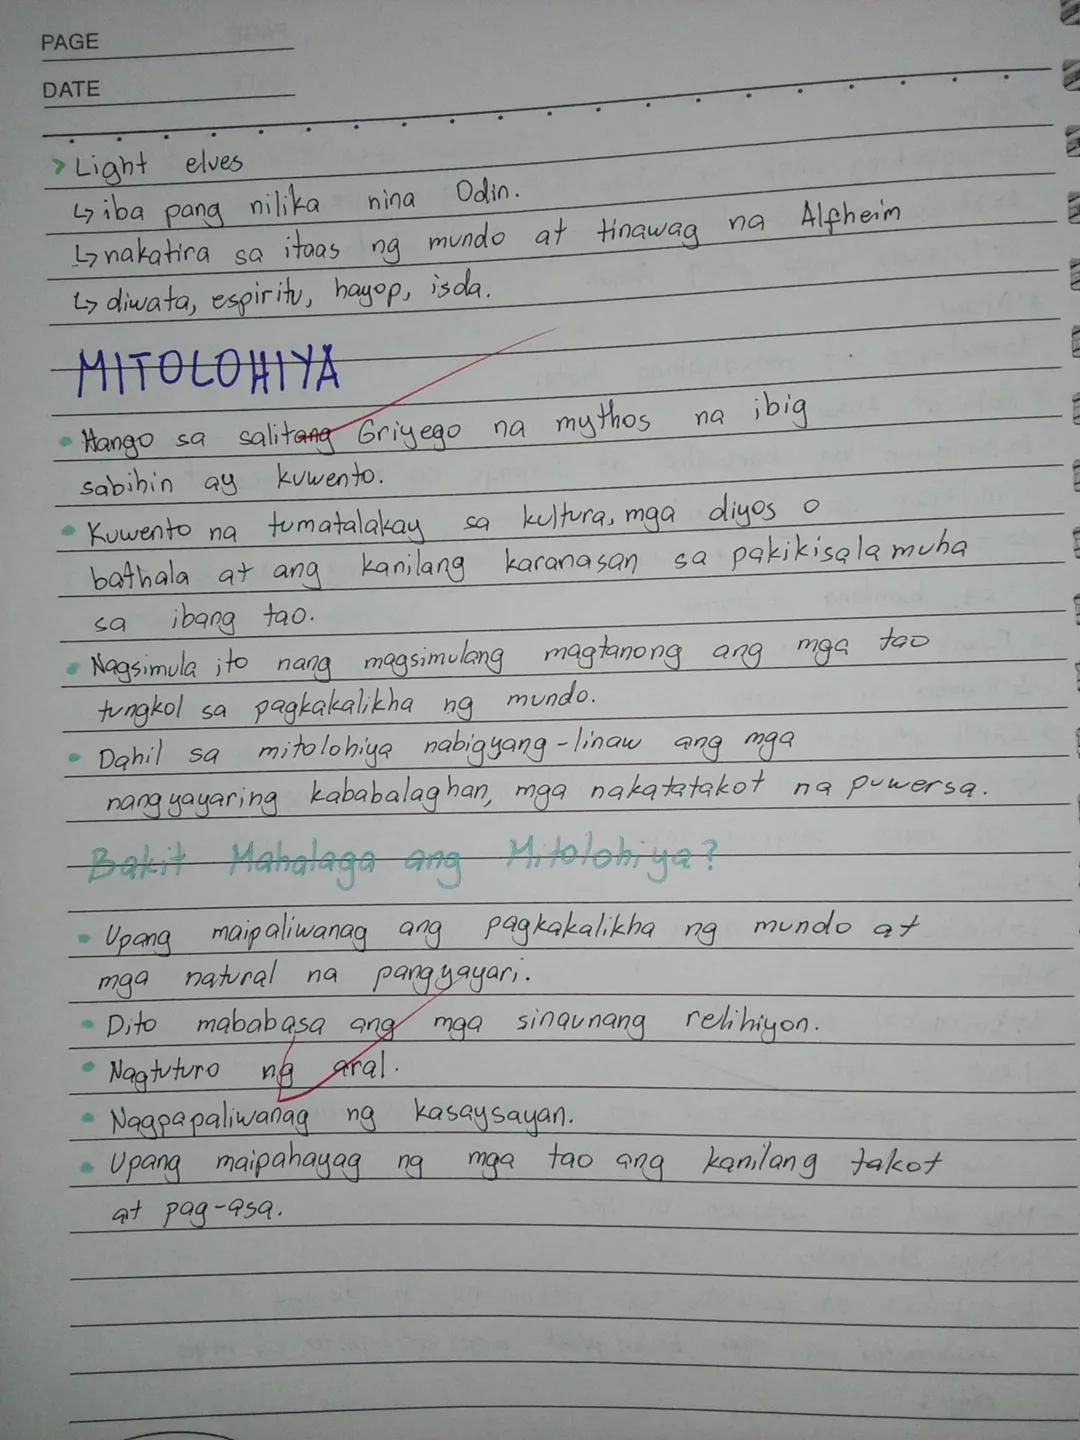 PAGE
DATE
> Light elves
↳ iba pang nilika nina Odin.
↳ nakatira sa itaas ng mundo at tinawag na Alfheim
↳ diwata, espiritu, hayop, isda.
MITOLOHIYA
• Hango sa salitang Griyego na mythos na ibig
sabihin ay kuwento.
• Kuwento na tumatalakay sa kultura, mga diyos o
bathala at ang kanilang karanasan sa pakikisalamuha
sa ibang tao.
• Nagsimula ito nang magsimulang magtanong ang mga tao
tungkol sa pagkakalikha ng mundo.
• Dahil sa mitolohiya nabigyang-linaw ang mga
nangyayaring kababalaghan, mga nakatatakot na puwersa.
Bakit Mahalaga ang Mitolohiya?
• Upang maipaliwanag ang pagkakalikha ng mundo at
mga natural na pangyayari.
• Dito mababasa ang mga sinaunang relihiyon.
• Nagtuturo ng aral.
• Nagpapaliwanag ng kasaysayan.
• Upang maipahayag ng mga tao ang kanilang takot
at pag-asa.